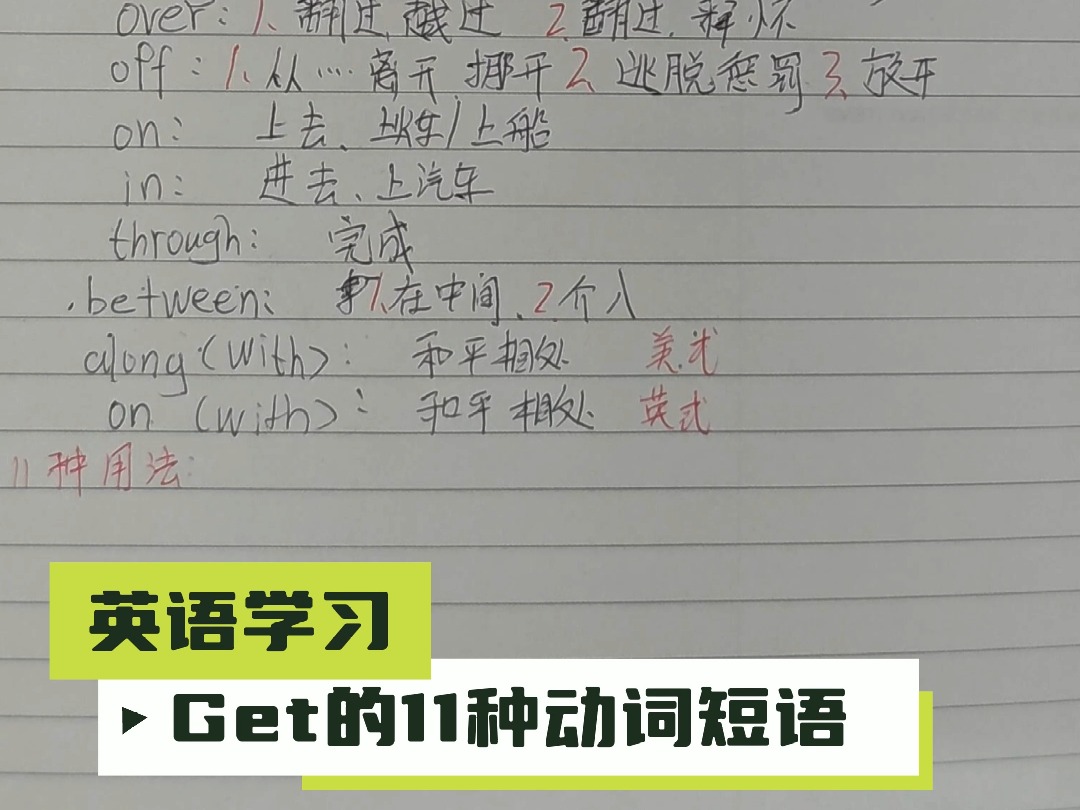 over: 1. 翻过,越过 2. 翻过,释怀
off: 1. 从…离开,挪开 2. 逃脱惩罚 3. 放开
on: 上去、上火车/上船
in: 进去、上汽车
through: 完成
.between: 1.在中间、2.介入
along(with): 和平相处 美式
on (with): 和平相处 英式
11种用法:
英语学习
▶ Get的11种动词短语